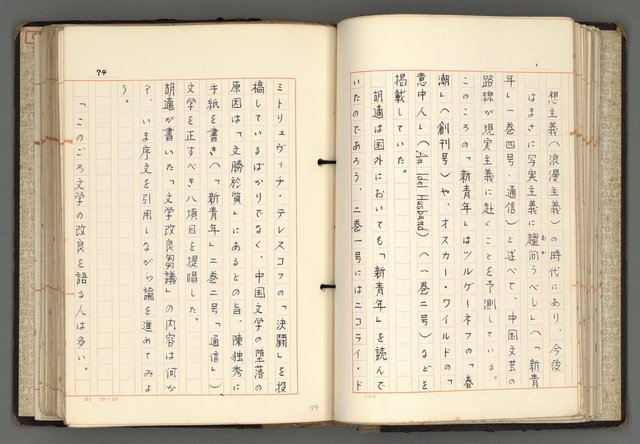 想主義（浪漫主義）の時代にあり、今後
はまさに写実主義に趨向うべし」（「新青
年」一巻四号・通信）と述べて、中国文芸の
路線が現実主義に赴くことを予測している。
このころの「新青年」はツルゲーネフの「春
潮」（創刊号）や、オスカー・ワイルドの「
意中人」（An Idel Husband）（一巻二号）などを
掲載していた。
胡適は国外においても「新青年」を読んで
いたのであろう、二巻一号にはニコライ・ド
ミトリェヴィチ・テレスコフの「決闘」を投
稿しているばかりでなく、中国文学の堕落の
原因は「文勝於質」にあるとの旨、陳独秀に
手紙を書き（「新青年」二巻二号「通信」）
文学を正すべき八項目を提唱した。
胡適が書いた「文学改良芻議」の内容は何か
？、いま序文を引用しながら論を進めてみよ
う。
「このごろ文学の改良を語る人は多い。
74
79